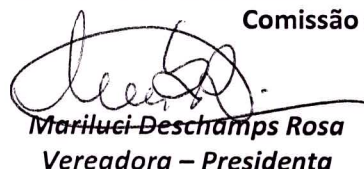 Comissão
Mariluci Deschamps Rosa
Vereadora – Presidenta